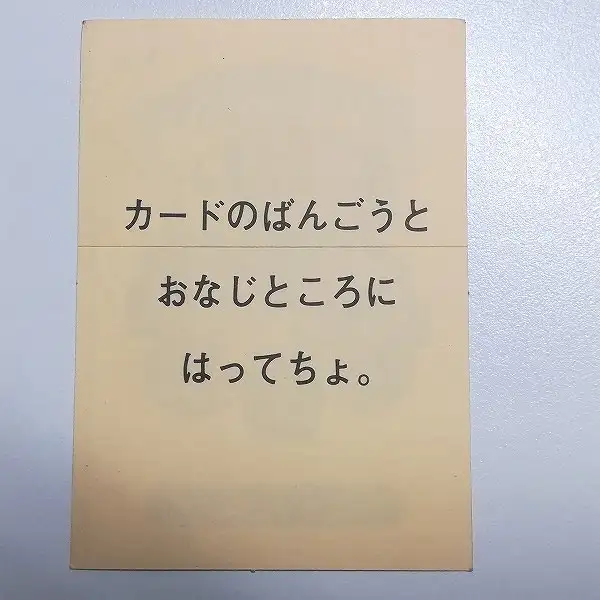 カードのばんごうと
おなじところに
はってちょ。